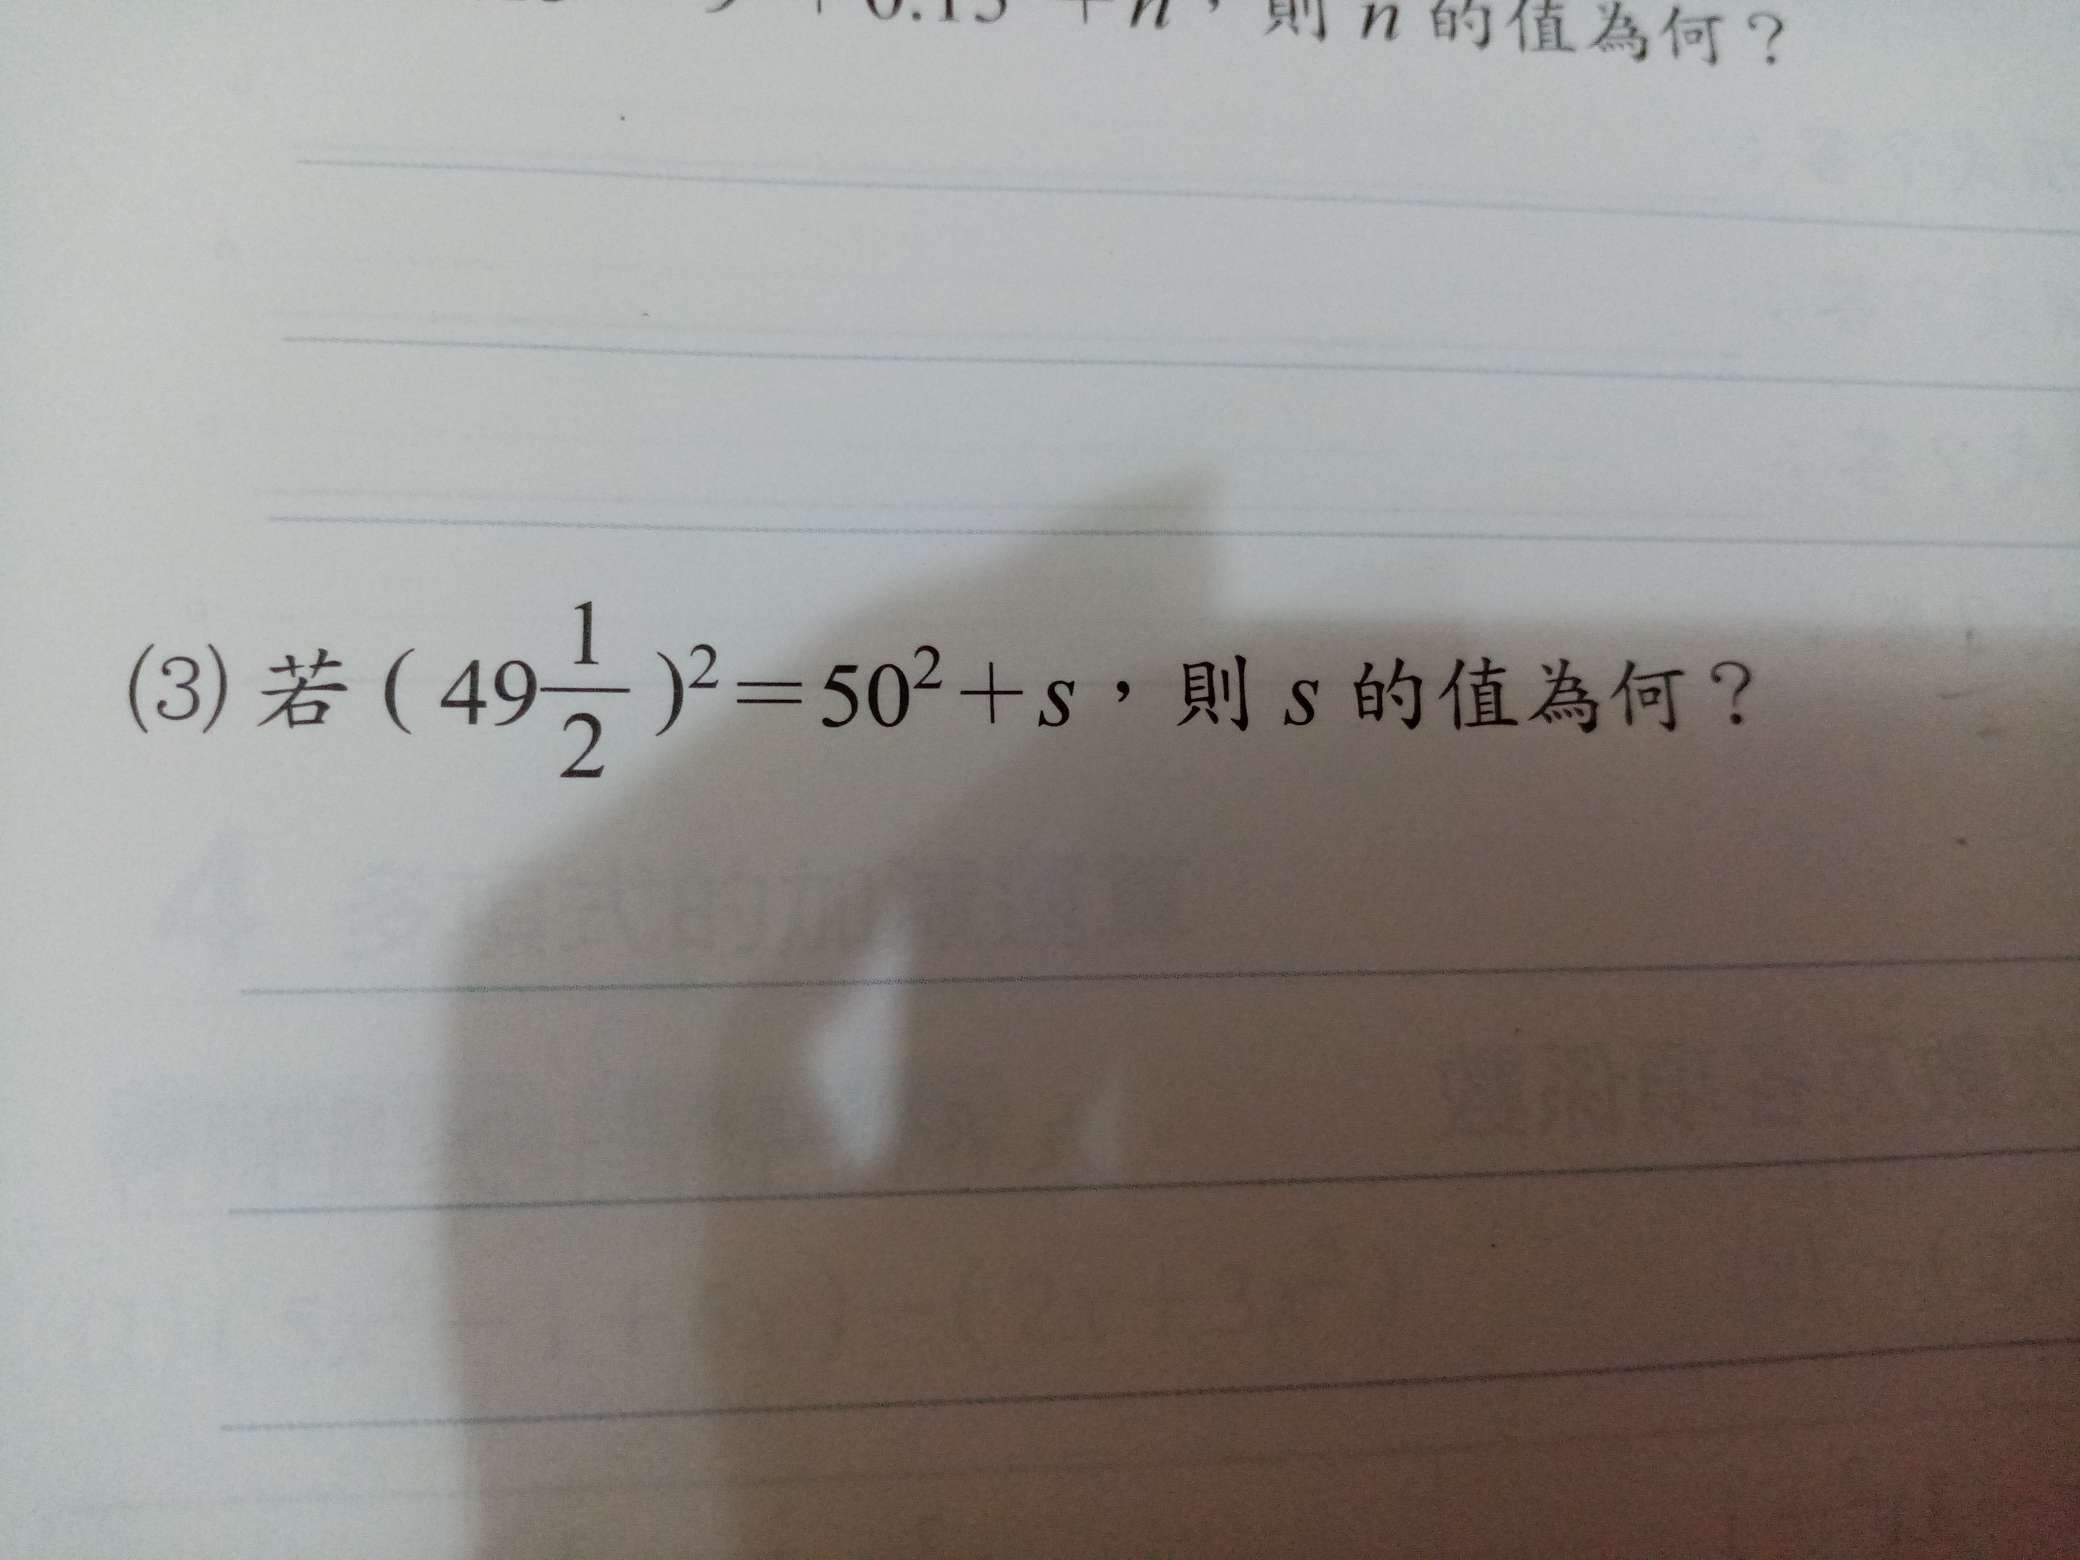 0.15 + n，則 n 的值為何？
(3) 若 ( 49\frac{1}{2} )²＝50²＋s，則 s 的值為何？